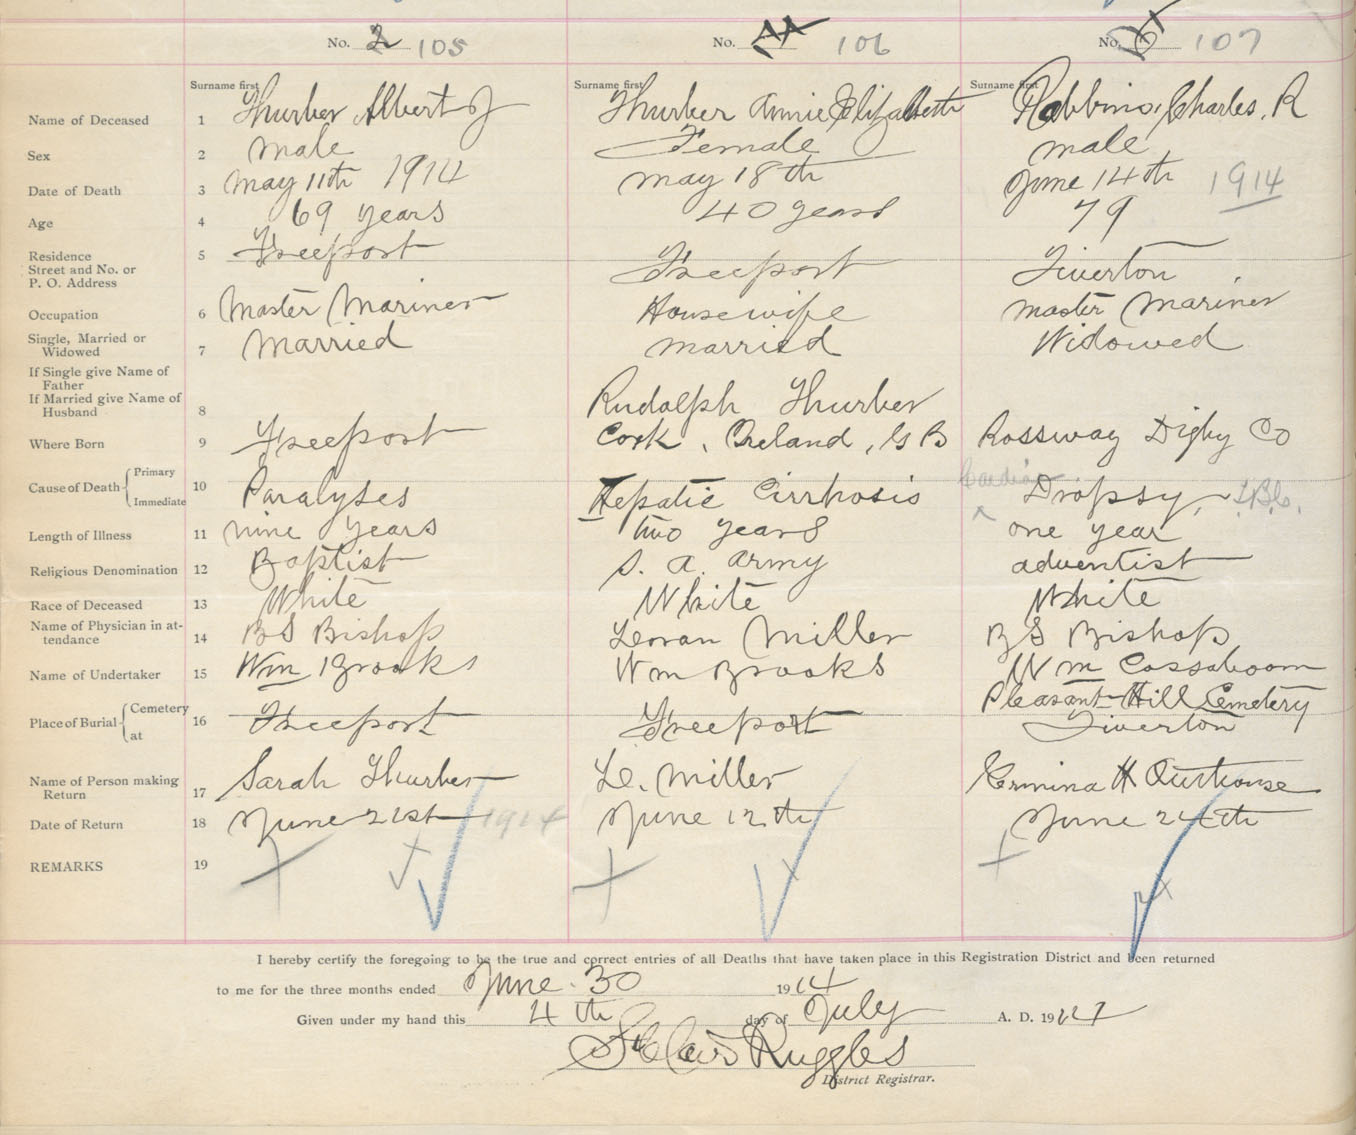 No. 2 105
No. 106
No. 107
Surname first
Surname first
Surname first
Name of Deceased 1 Thurber Albert J Thurber Annie Elizabeth Robbins, Charles, R
Sex 2 male Female male
Date of Death 3 May 11th 1914 May 18th June 14th 1914
Age 4 69 years 40 years 79
Residence
Street and No. or
P. O. Address
5 Freeport Freeport Tiverton
Occupation 6 Master Mariner Housewife master Mariner
Single, Married or
Widowed
7 Married married Widowed
If Single give Name of
Father
If Married give Name of
Husband
8 Rudolph Thurber
Where Born 9 Freeport Cork, Ireland, G B Rossway Digby Co
Cause of Death Primary
Immediate
10 Paralyses Hepatic Cirrhosis Cardiac Dropsy,
Length of Illness 11 nine years two years one year
Religious Denomination 12 Baptist S. A. Army adventist
Race of Deceased 13 White White White
Name of Physician in at-
tendance
14 BS Bishop Miller BS Bishop
Name of Undertaker 15 Wm Brooks Wm Brooks Wm Cossaboom
Place of Burial Cemetery
at
16 Freeport Freeport Pleasant Hill Cemetery
Tiverton
Name of Person making
Return
17 Sarah Thurber Le. Miller Ermina H Outhouse
Date of Return 18 June 21st 1914 June 12th June 24th
REMARKS 19
I hereby certify the foregoing to be the true and correct entries of all Deaths that have taken place in this Registration District and been returned
to me for the three months ended June 30 1914
Given under my hand this 4th day of July A. D. 1914
St Clair Ruggles
District Registrar.